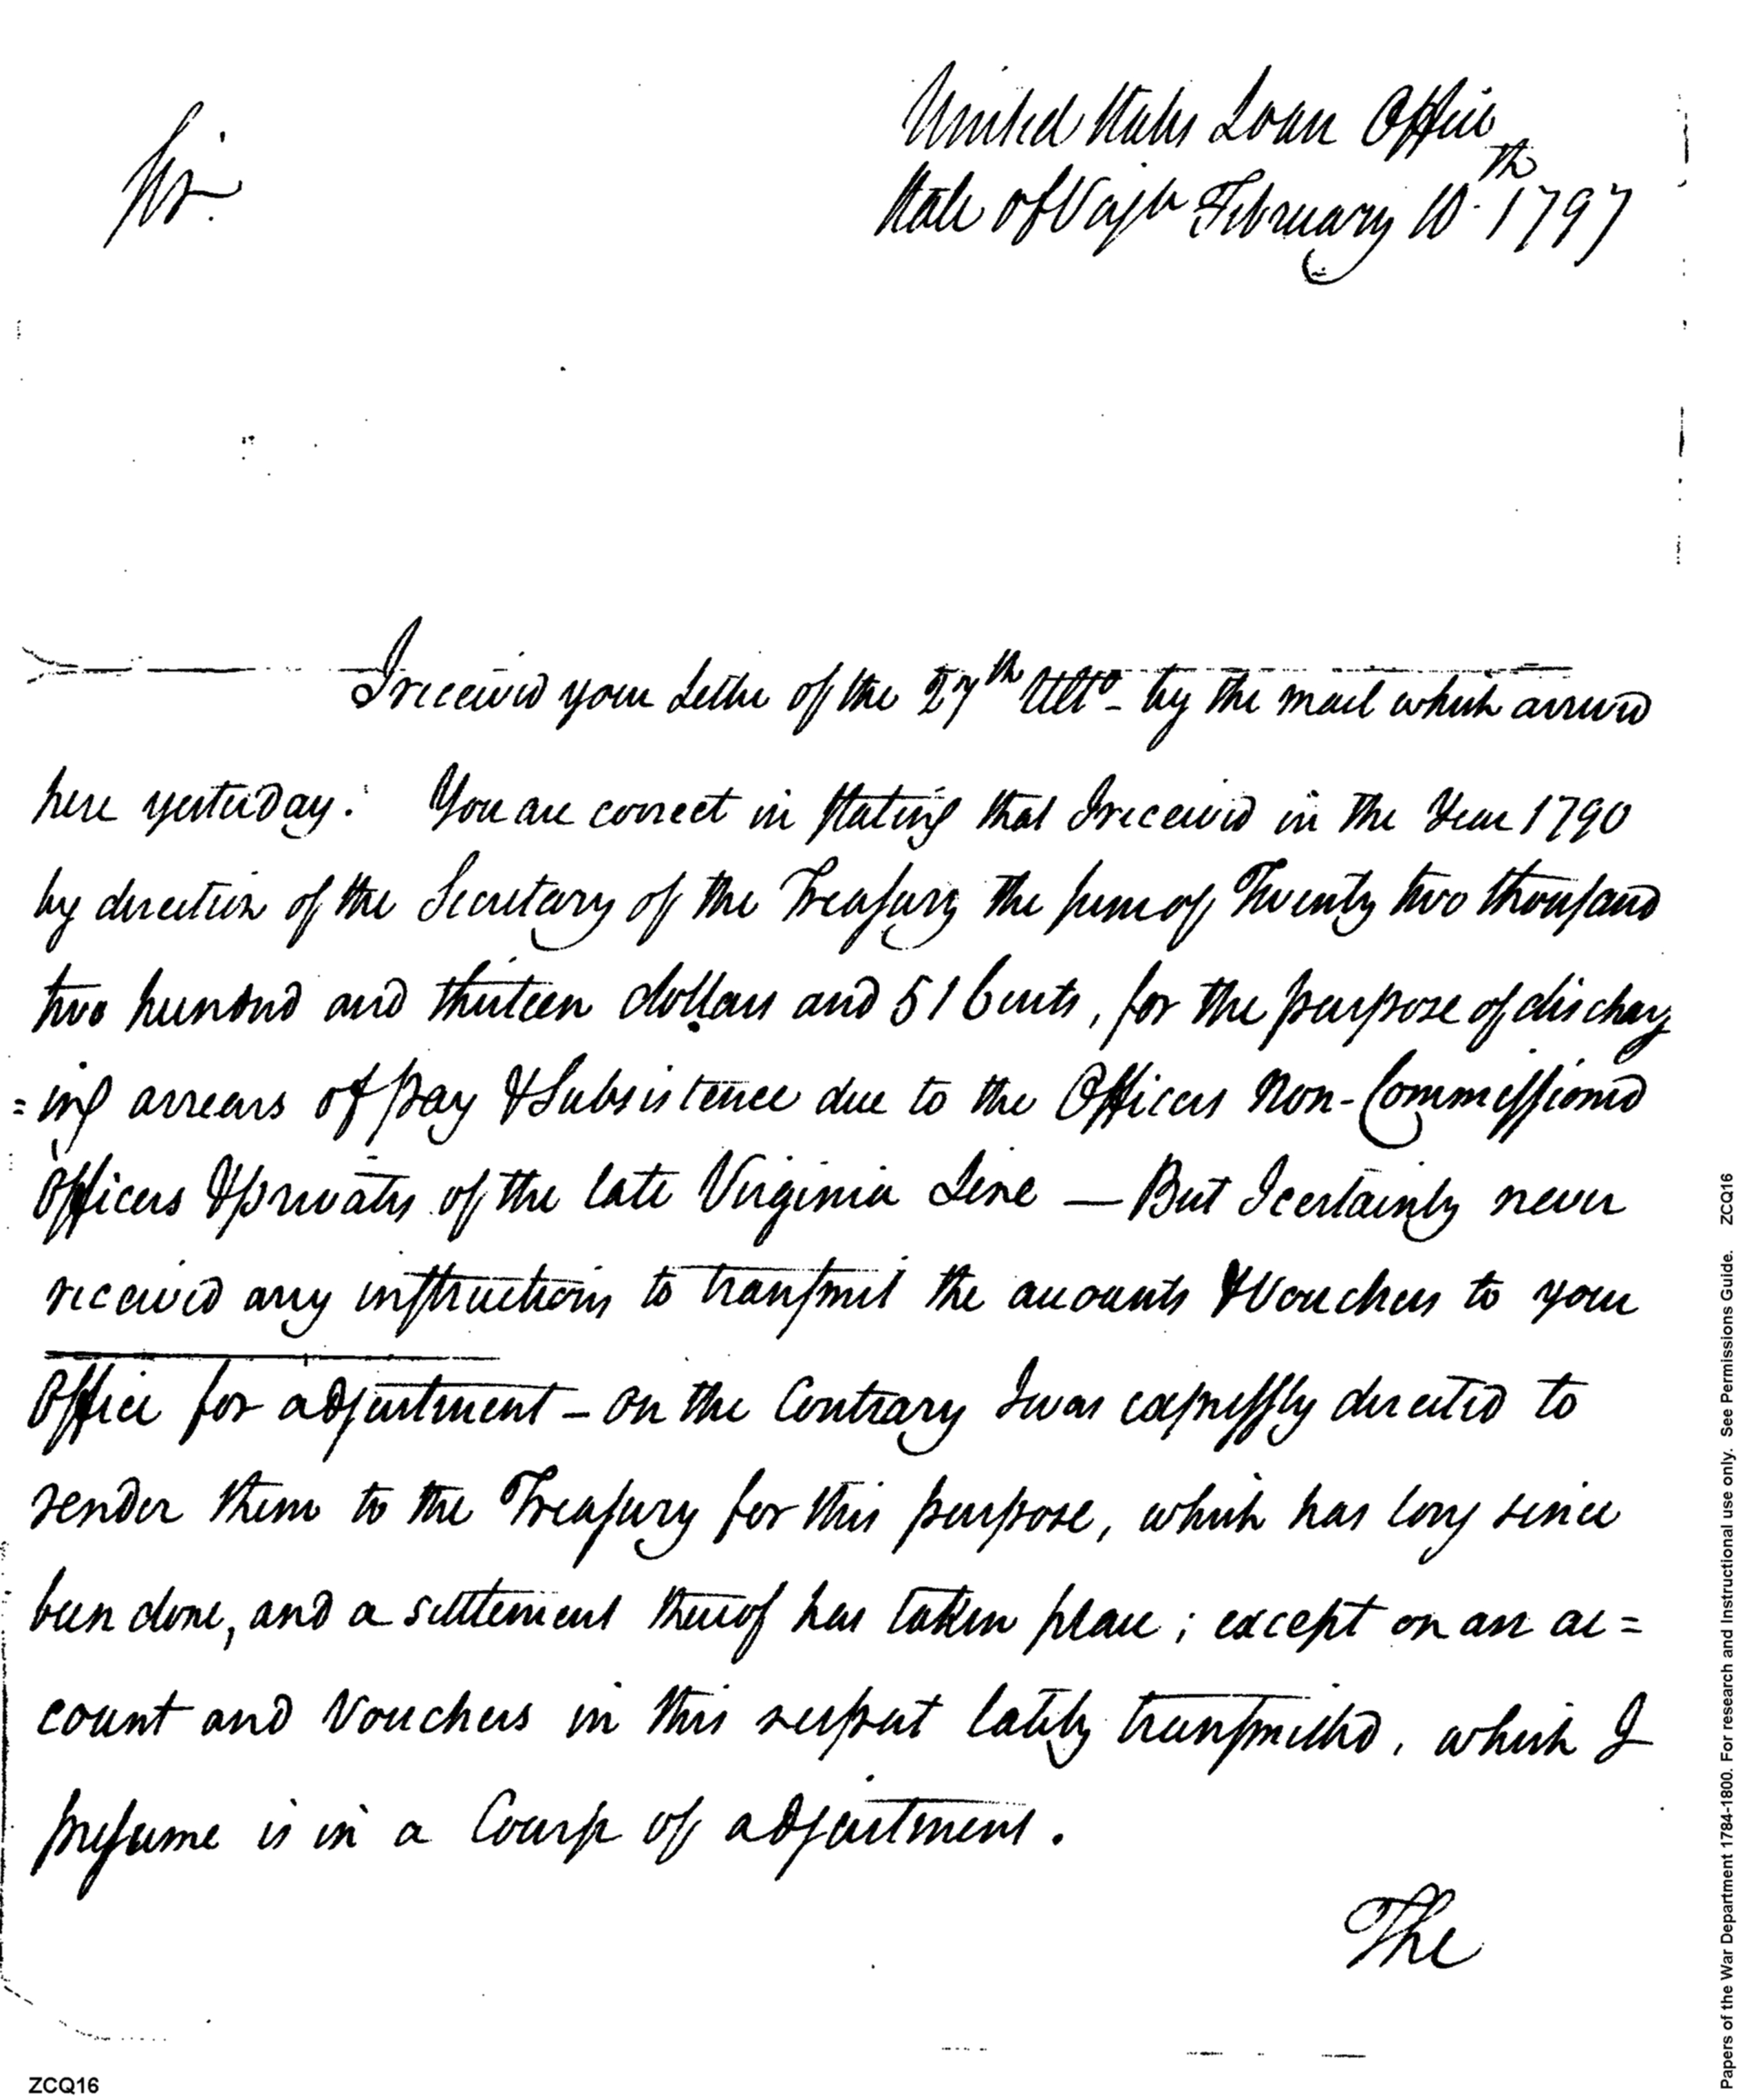 United States Loan Office
Sir.
State of Virga February 10th 1797
I received your Letter of the 27th Ulto - by the mail which arrived
here yesterday: You are correct in stating that I received in the Year 1790
by direction of the Secretary of the Treasury the sum of Twenty two thousand
two hundred and thirteen dollars and 51 Cents, for the purpose of discharg
=ing arrears of pay & Subsistence due to the Officers Non-Commissioned
Officers & privates of the late Virginia Line — But I certainly never
received any instructions to transmit the accounts & Vouchers to your
Office for adjustment - on the Contrary I was expressly directed to
render them to the Treasury for this purpose, which has long since
been done, and a settlement thereof has taken place; except on an ac=
count and Vouchers in this respect lately transmitted, which I
presume is in a Course of adjustment.
The
ZCQ16
Papers of the War Department 1784-1800. For research and Instructional use only. See Permissions Guide. ZCQ16